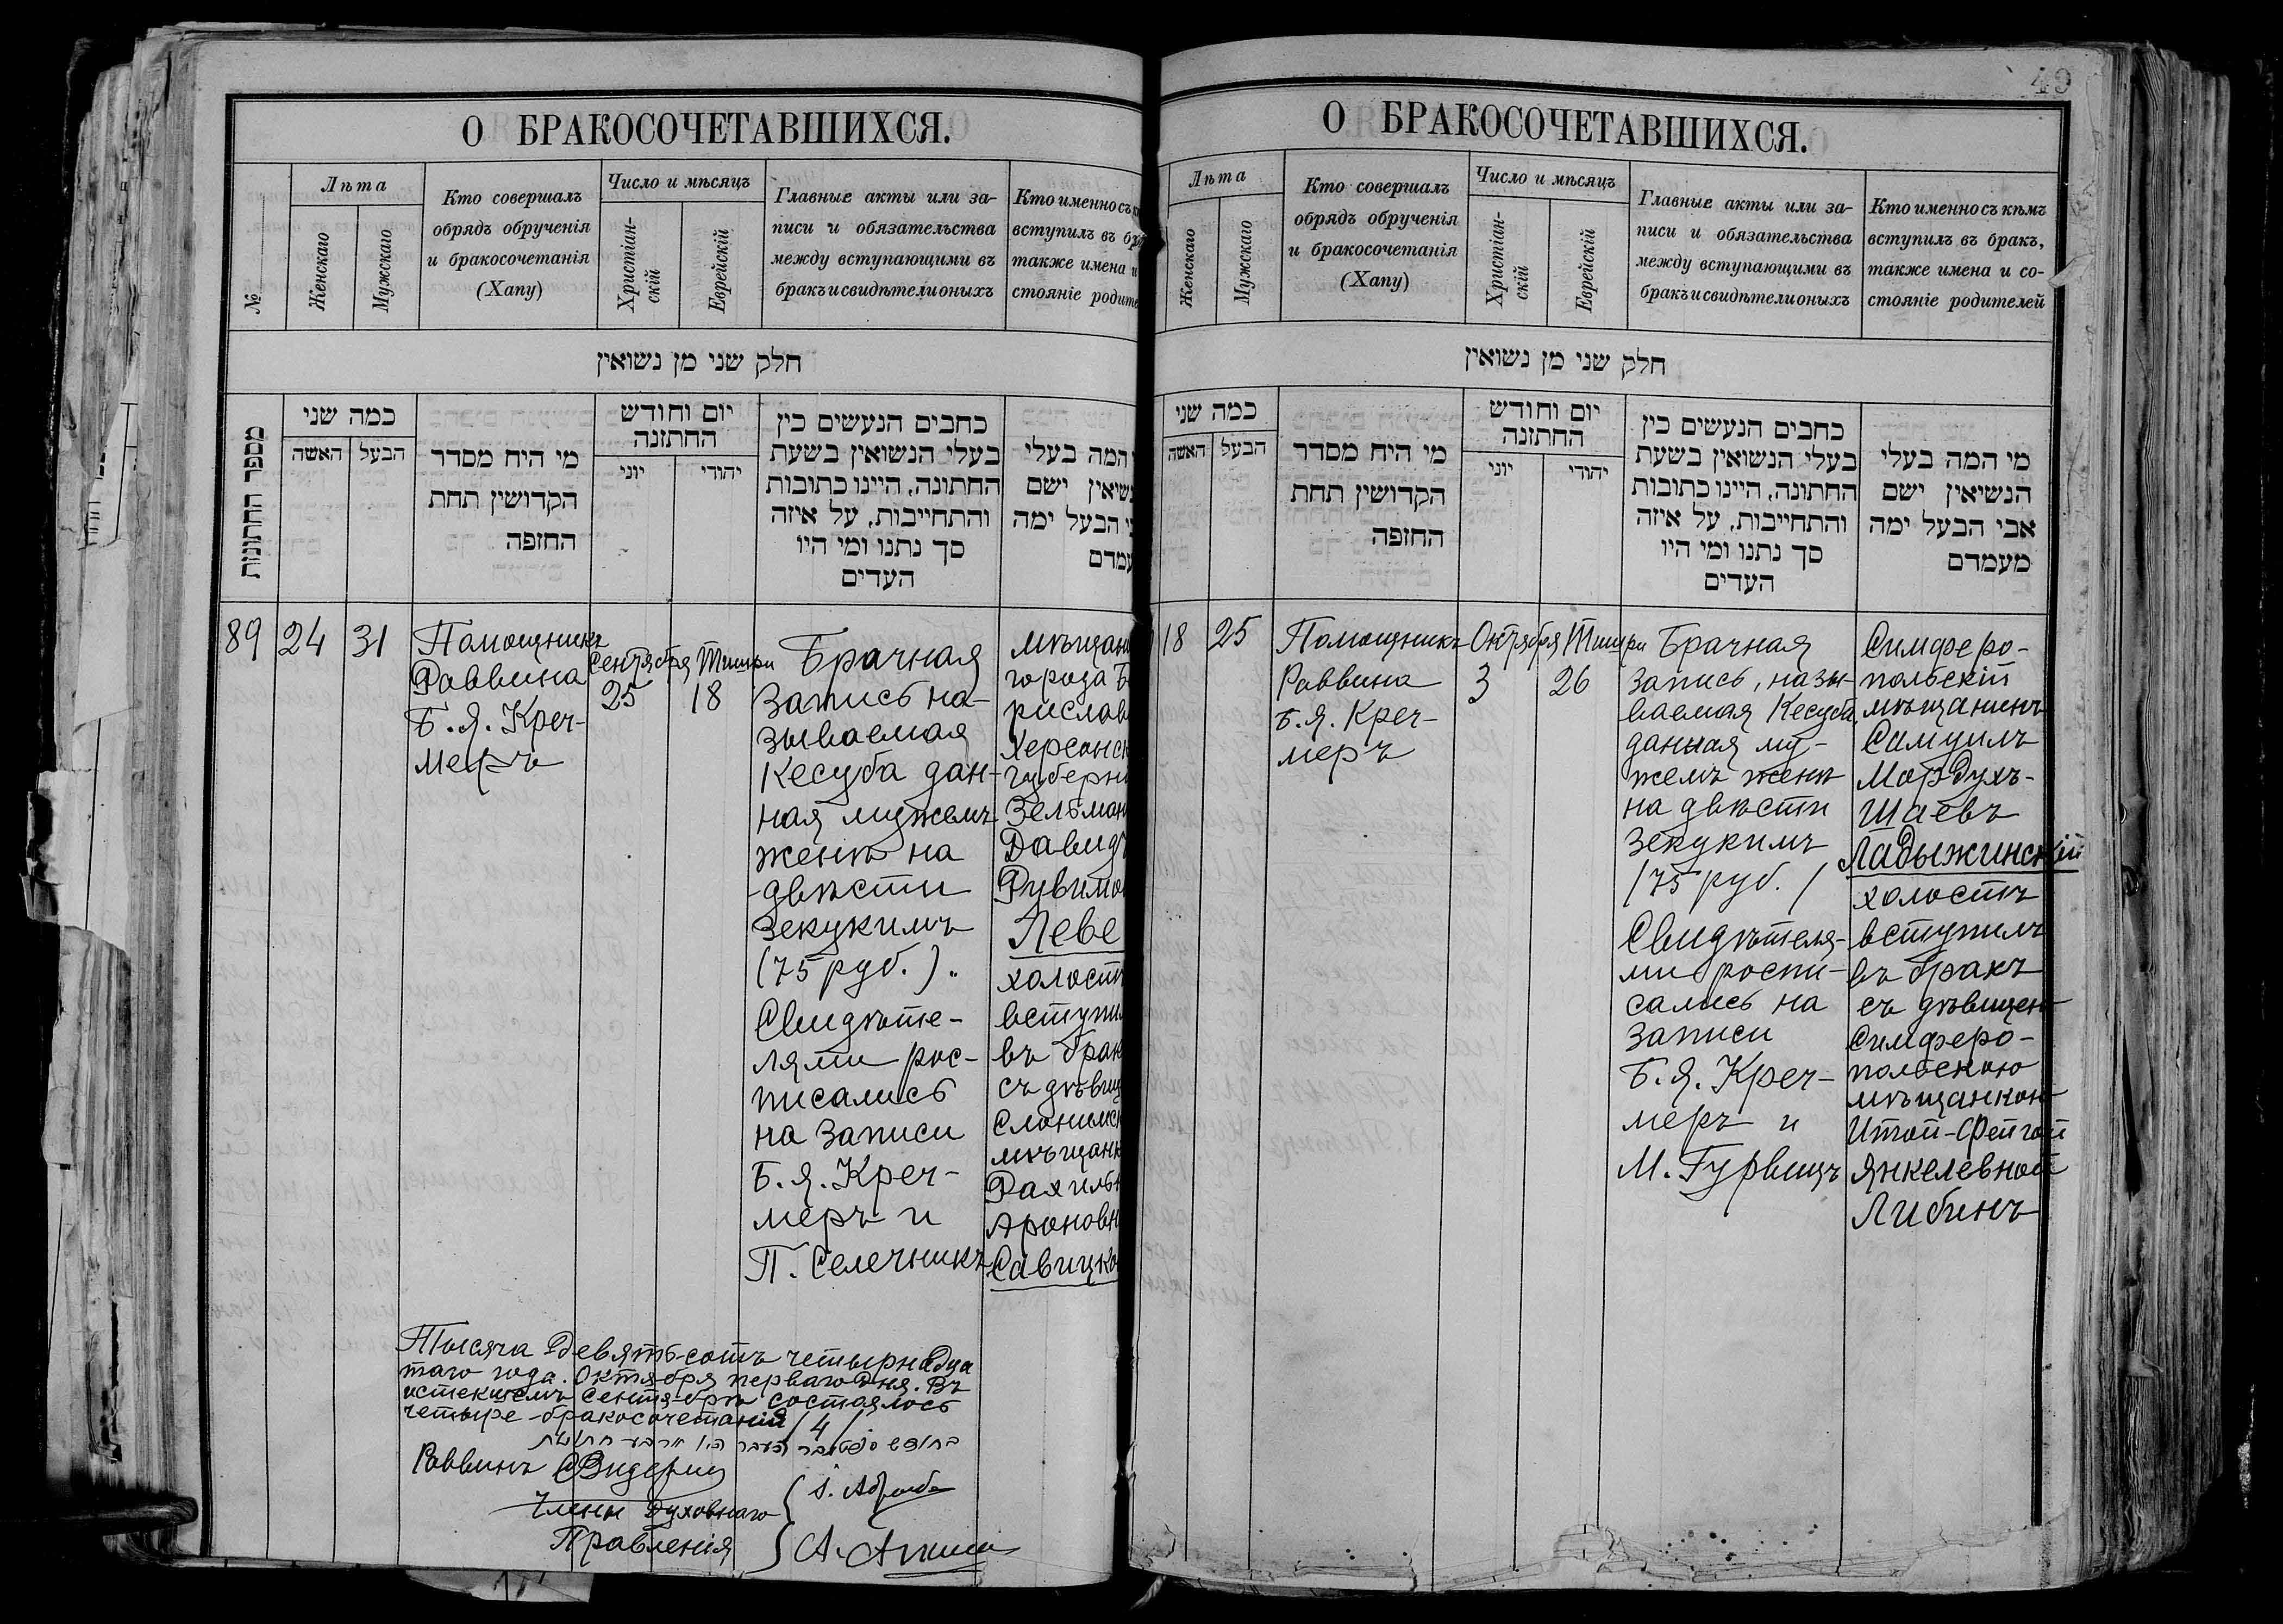 О БРАКОСОЧЕТАВШИХСЯ.
№
Лѣта
Женскаго
Мужскаго
Кто совершалъ
обрядъ обрученія
и бракосочетанія
(Хапу)
Число и мѣсяцъ
Христіан-
скій
Еврейскій
Главные акты или за-
писи и обязательства
между вступающими въ
бракъ и свидѣтели оныхъ
Кто именно съ
вступилъ въ
также имена и
стояніе
חלק שני מן נשואין
מספר החתונות
כמה שני
האשה
הבעל
מי היח מסדר
הקדושין תחת
החופה
יום וחודש
החתונה
יוני
יהודי
כחבים הנעשים כין
בעלי הנשואין בשעת
החתונה, היינו כתובות
והתחייבות, על איזה
סך נתנו ומי היו
העדים
המה בעלי
ישם
הבעל ימה
89
24
31
Помощникъ
Раввина
Б. Я. Креч-
меръ
Сентября
25
Тишри
18
Брачная
Запись на-
зываемая
Кесуба дан-
ная мужемъ
женѣ на
двѣсти
Зекукимъ
(75 руб.).
Свидѣте-
лями рос-
писались
на Записи
Б. Я. Креч-
меръ и
П. Селечникъ
города
Давидъ
въ
съ
Тысяча Девятьсотъ четырнадца
таго года. Октября перваго дня. Въ
истекшемъ Сентябрѣ состоялось
четыре бракосочетанія /4/
Раввинъ
Члены Духовнаго
Правленія
49
О БРАКОСОЧЕТАВШИХСЯ.
Лѣта
Женскаго
Мужскаго
Кто совершалъ
обрядъ обрученія
и бракосочетанія
(Хапу)
Число и мѣсяцъ
Христіан-
скій
Еврейскій
Главные акты или за-
писи и обязательства
между вступающими въ
бракъ и свидѣтели оныхъ
Кто именно съ кѣмъ
вступилъ въ бракъ,
также имена и со-
стояніе родителей
חלק שני מן נשואין
כמה שני
האשה
הבעל
מי היח מסדר
הקדושין תחת
החופה
יום וחודש
החתונה
יוני
יהודי
כחבים הנעשים כין
בעלי הנשואין בשעת
החתונה, היינו כתובות
והתחייבות, על איזה
סך נתנו ומי היו
העדים
מי המה בעלי
הנשיאין ישם
אבי הבעל ימה
מעמדם
18
25
Помощникъ
Раввина
Б. Я. Креч-
меръ
Октября
3
Тишри
26
Брачная
Запись, назы-
ваемая Кесуба,
данная му-
жемъ женѣ
на двѣсти
Зекукимъ
/75 руб./
Свидѣтеля-
ми роспи-
сались на
Записи
Б. Я. Креч-
меръ и
М. Гурвицъ
Симферо-
польскій
мѣщанинъ
Самуилъ
Мордухъ-
Шаевъ
Ладыжинскій
холостъ
вступилъ
въ бракъ
съ дѣвицею
Симферо-
польскою
мѣщанкою
Итой-Фейгой
Янкелевной
Либинъ